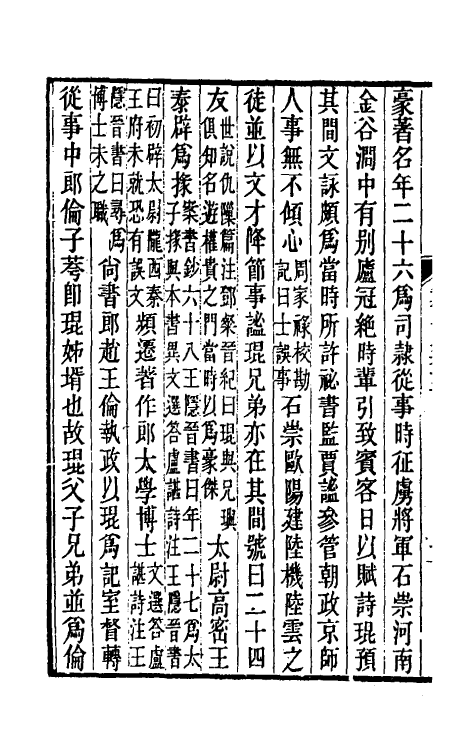 豪著名年二十六爲司隸從事時征虜將軍石崇河南
金谷澗中有別廬冠絕時輩引致賓客日以賦詩琨預
其間文詠頗爲當時所許祕書監賈謐參管朝政京師
人事無不傾心周家祿校勘記曰士誤事石崇歐陽建陸機陸雲之
徒並以文才降節事謐琨兄弟亦在其間號曰二十四
友世說仇隟篇注鄧粲晉紀曰琨與兄璵俱知名遊權貴之門當時以爲豪傑太尉高密王
泰辟爲掾案書鈔六十八王隱晉書曰年二十七爲太子掾與本書異文選答盧諶詩注王隱晉書
曰初辟太尉隴西秦王府未就恐有誤文頻遷著作郎太學博士文選答盧諶詩注王
隱晉書曰尋爲博士未之職尚書郎趙王倫執政以琨爲記室督轉
從事中郎倫子荂卽琨姊壻也故琨父子兄弟並爲倫